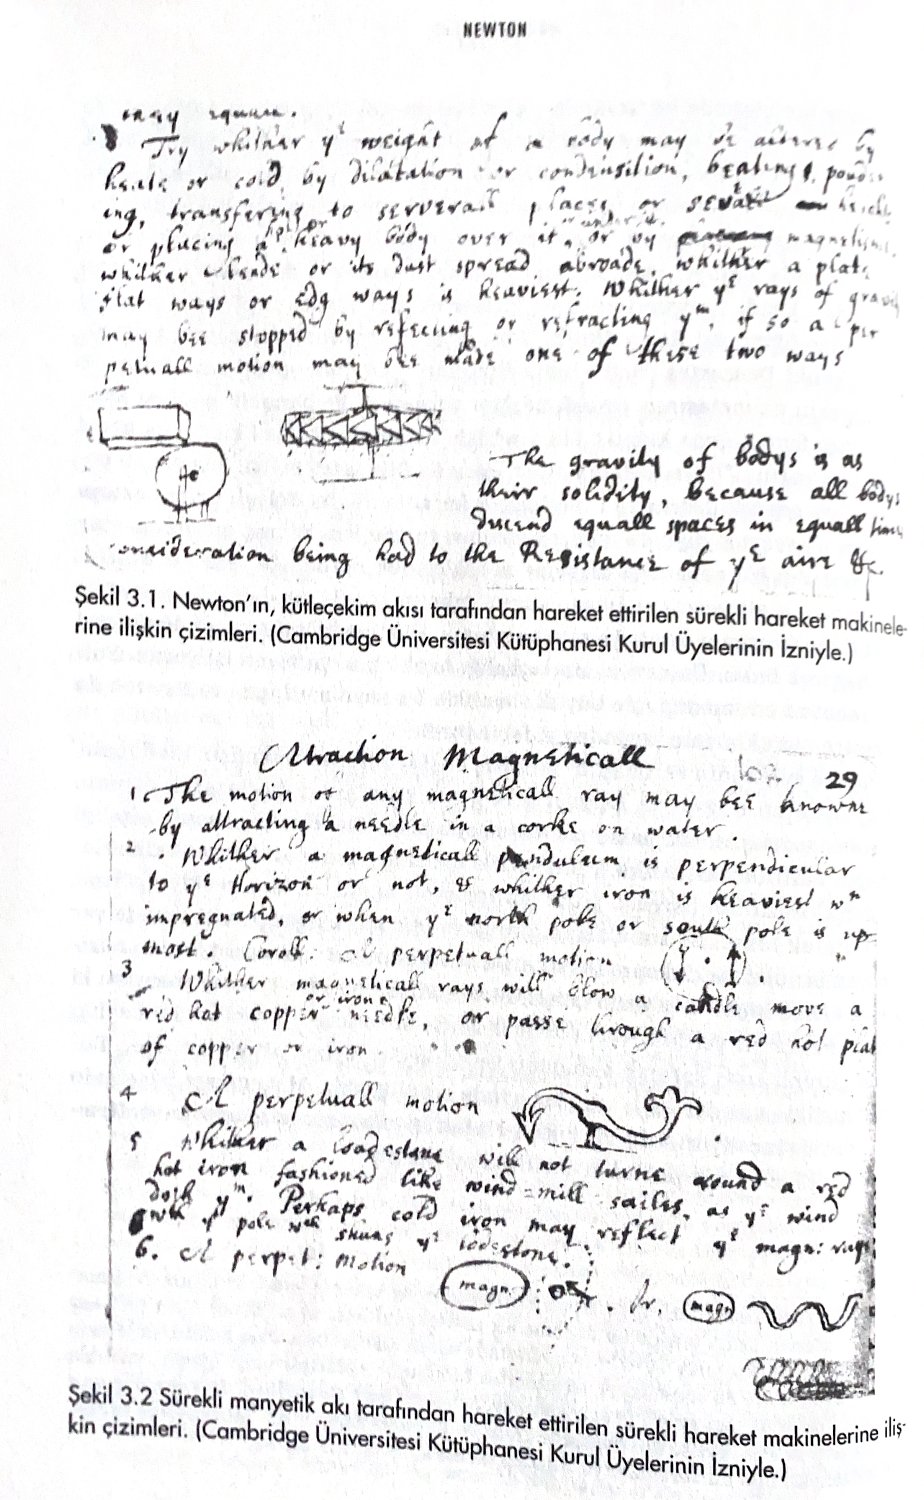 NEWTON
may square.
Try whither ye weight of a body may be altered by
heate or cold, by dilatation or condensition, beating, poud
ing, transfering to serverall places or severall
or placing a heavy body over it or under it or by magnetisme,
whither leade or its dust spread abroade, whither a plate
flat ways or edg ways is heaviest. Whither ye rays of gravi
may bee stopped by reflecting or refracting ym, if so a per
petuall motion may bee made one of these two ways
The gravity of bodys is as
their solidity, because all bodys
descend equall spaces in equall times
consideration being had to the Resistance of ye aire &c.
Şekil 3.1. Newton’ın, kütleçekim akısı tarafından hareket ettirilen sürekli hareket makinele-
rine ilişkin çizimleri. (Cambridge Üniversitesi Kütüphanesi Kurul Üyelerinin İzniyle.)
Attraction Magneticall 102 29
1 The motion of any magneticall ray may bee knowne
by attracting a needle in a corke on water.
2 Whither a magneticall pendulum is perpendicular
to ye Horizon or not, & whither iron is heaviest wn
impregnated, or when ye north pole or south pole is up
most. Coroll: A perpetuall motion
3 Whither magneticall rays will blow a candle move a
red hot copper or iron needle, or passe through a red hot plate
of copper or iron
4 A perpetuall motion
5 Whither a loadestone will not turne around a red
hot iron fashioned like wind-mill sailes, as ye wind
doth ym. Perhaps cold iron may reflect ye magn: rays
wth pole wch shuns ye lodestone.
6. A perpet: motion
magn. Or magn
Şekil 3.2 Sürekli manyetik akı tarafından hareket ettirilen sürekli hareket makinelerine iliş-
kin çizimleri. (Cambridge Üniversitesi Kütüphanesi Kurul Üyelerinin İzniyle.)